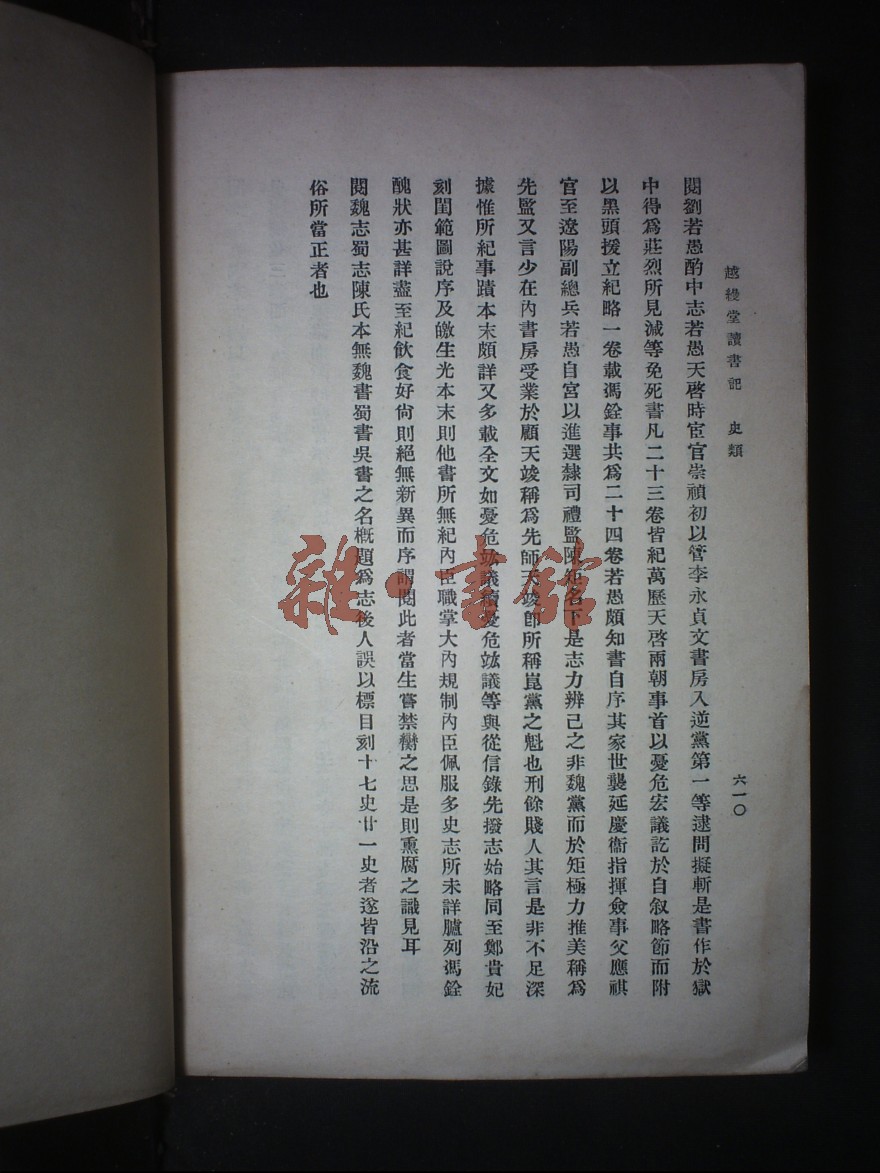 越縵堂讀書記　史類
六一〇
閱劉若愚酌中志若愚天啓時宦官崇禎初以管李永貞文書房入逆黨第一等逮問擬斬是書作於獄
中得爲莊烈所見減等免死書凡二十三卷皆紀萬歷天啓兩朝事首以憂危宏議訖於自叙略節而附
以黑頭援立紀略一卷載馮銓事共爲二十四卷若愚頗知書自序其家世襲延慶衞指揮僉事父應祺
官至遼陽副總兵若愚自宮以進選隸司禮監陳矩名下是志力辨己之非魏黨而於矩極力推美稱爲
先監又言少在內書房受業於顧天竣稱爲先師天竣卽所稱崑黨之魁也刑餘賤人其言是非不足深
據惟所紀事蹟本末頗詳又多載全文如憂危竑議續憂危竑議等與從信錄先撥志始略同至鄭貴妃
刻閨範圖說序及皦生光本末則他書所無紀內臣職掌大內規制內臣佩服多史志所未詳臚列馮銓
醜狀亦甚詳盡至紀飲食好尙則絕無新異而序謂閱此者當生嘗禁臠之思是則熏腐之識見耳
閱魏志蜀志陳氏本無魏書蜀書吳書之名槪題爲志後人誤以標目刻十七史廿一史者遂皆沿之流
俗所當正者也
雜·書館